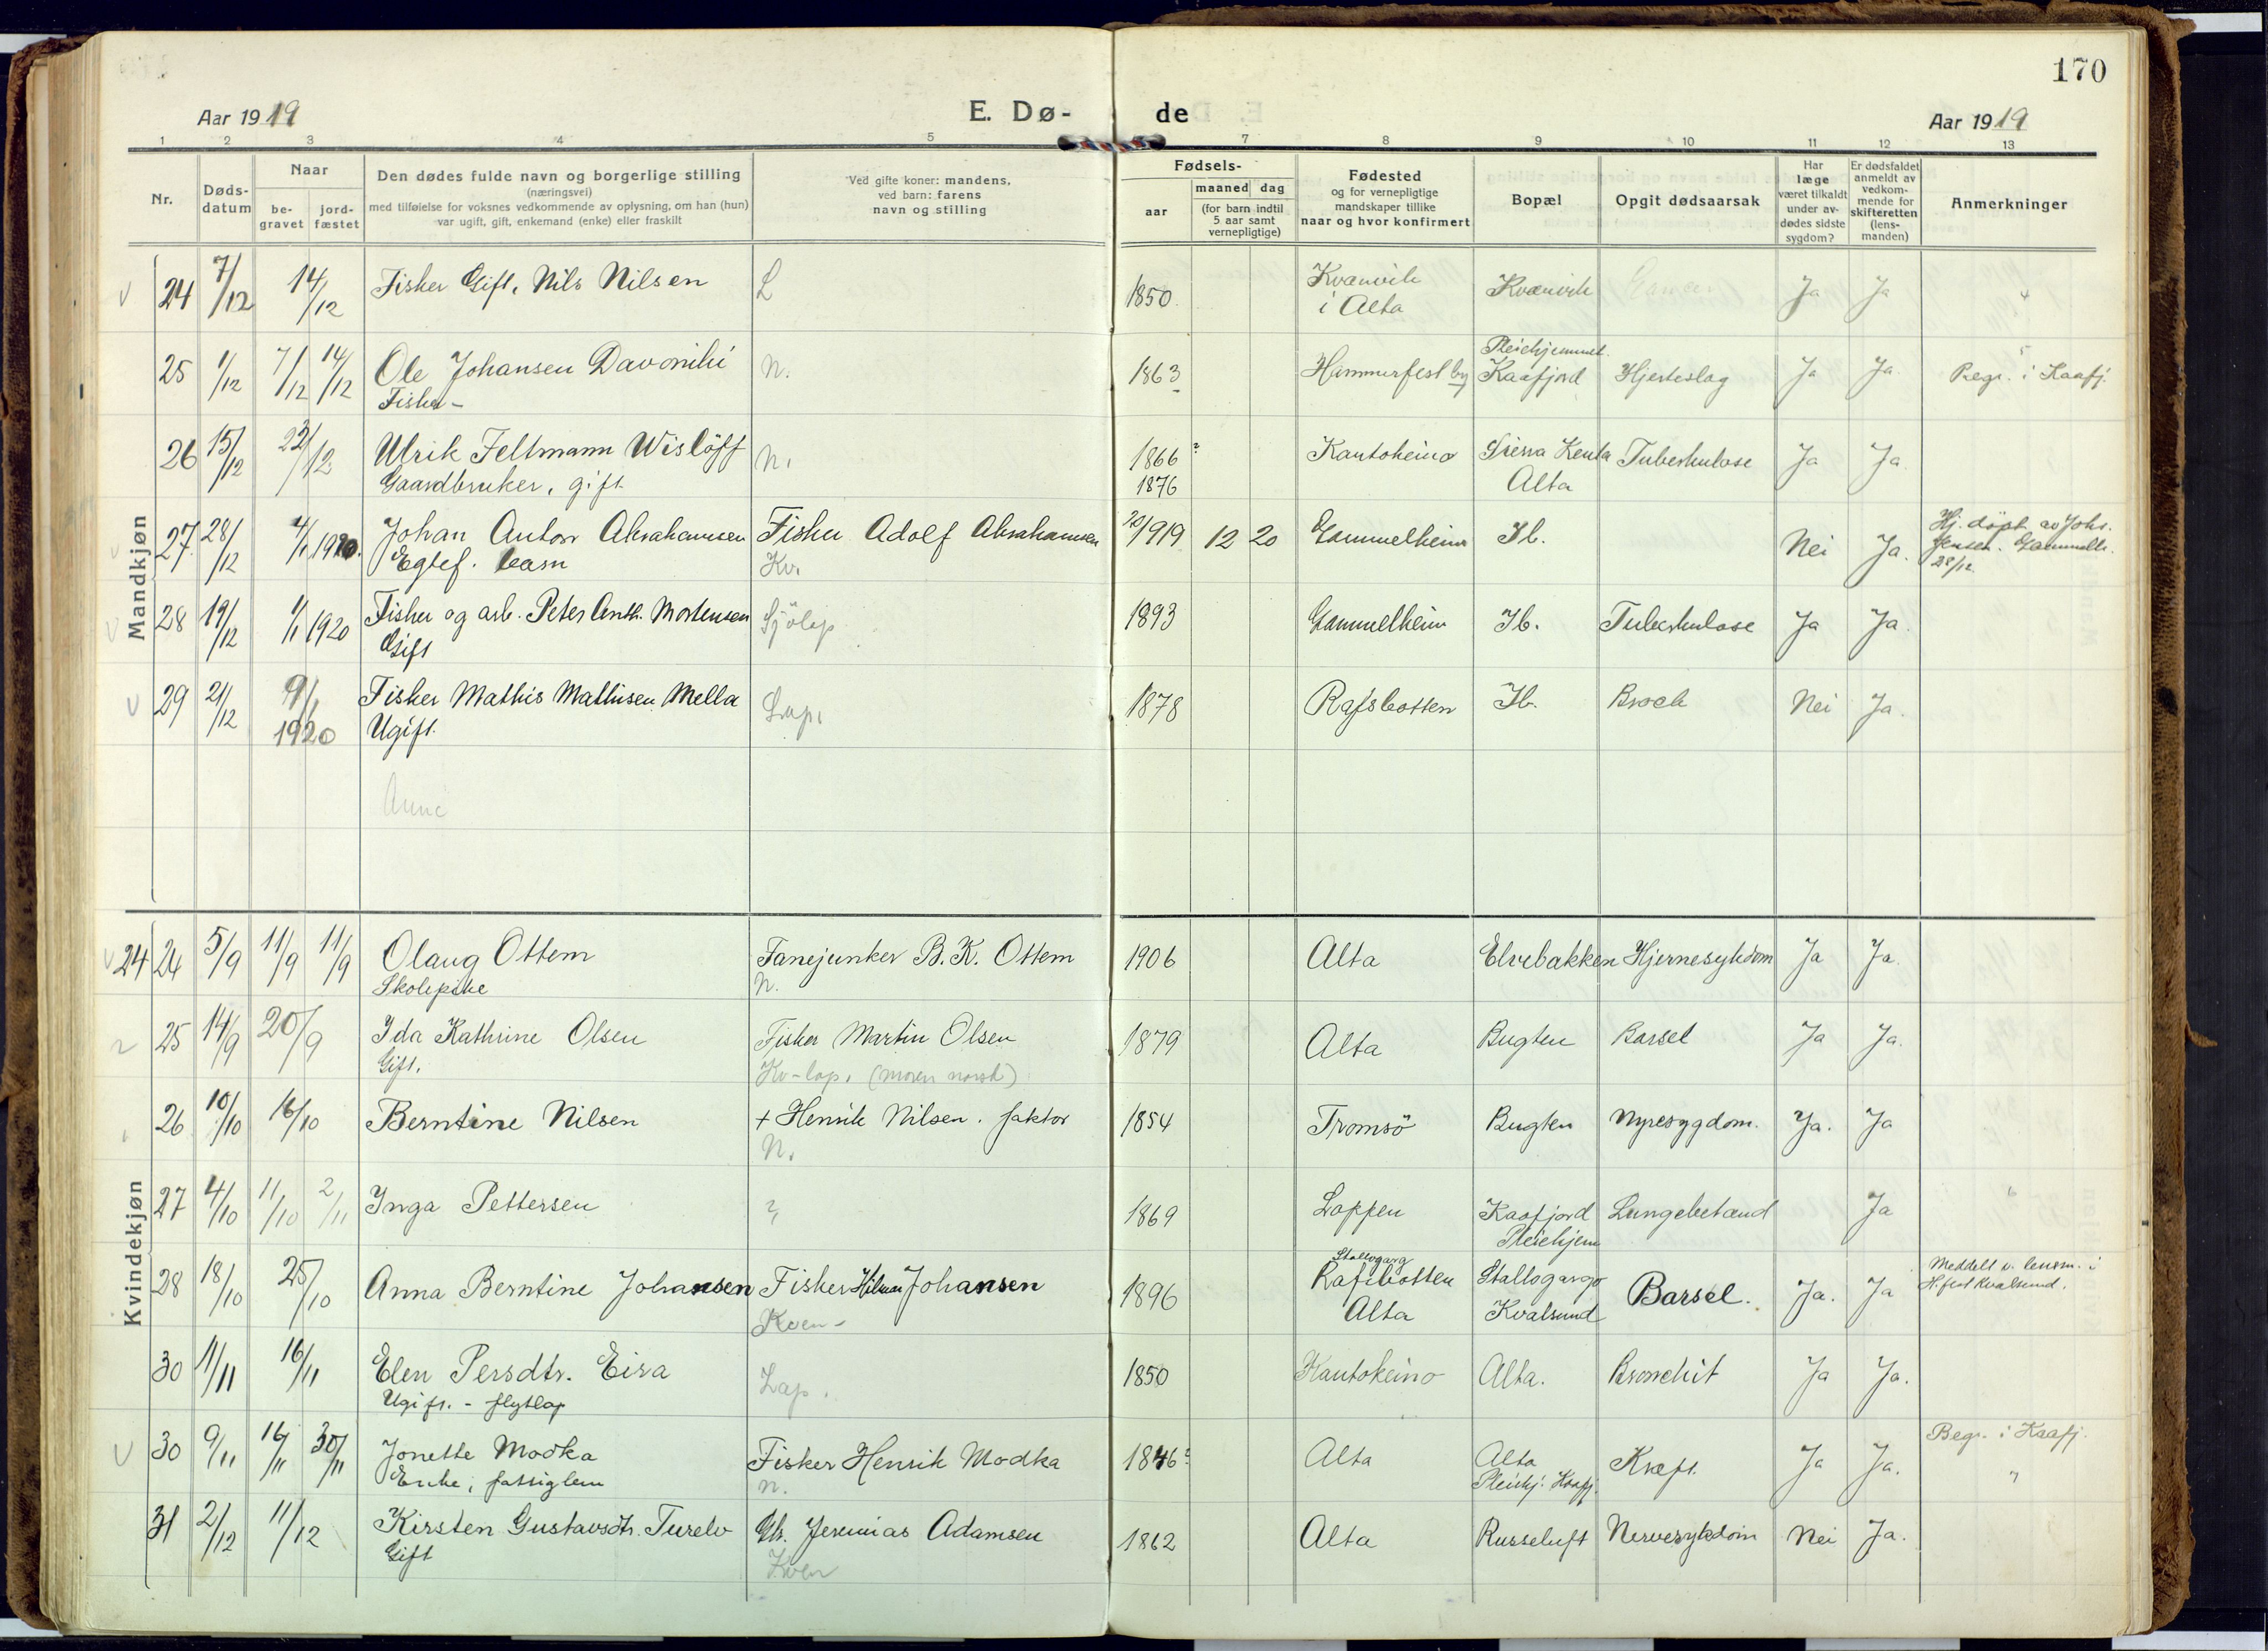 170
Aar 1919
E. Dø-
de
Aar 1919
1 2 3 4 5 7 8 9 10 11 12 13
Nr.
Døds-
datum
Naar
be-
gravet
jord-
fæstet
Den dødes fulde navn og borgerlige stilling
(næringsvei)
med tilføielse for voksnes vedkommende av oplysning, om han (hun)
var ugift, gift, enkemand (enke) eller fraskilt
Ved gifte koner: mandens,
ved barn: farens
navn og stilling
Fødsels-
aar
maaned dag
(for barn indtil
5 aar samt
vernepligtige)
Fødested
og for vernepligtige
mandskaper tillike
naar og hvor konfirmert
Bopæl
Opgit dødsaarsak
Har
læge
været tilkaldt
under av-
dødes sidste
sygdom?
Er dødsfaldet
anmeldt av
vedkom-
mende for
skifteretten
(lens-
manden)
Anmerkninger
Mandkjøn
24 7/12 14/12 Fisker Gift, Nils Nilsen L 1850 Kvænvik Kvænvik Ja Ja
i Alta
Pleiehjemmet.
25 1/12 7/12 14/12 Ole Johansen Davoniki N. 1863 Hammerfest by Kaafjord Hjerteslag Ja Ja Begr. i Kaafj.
Fisker -
26 15/12 22/12 Ulrik Feltmann Wisløff N. 1866? Kautokeino Sierra Kenta Tuberkulose Ja Ja
Gaardbruker, gift 1876 Alta
27 28/12 4/1 1920. Johan Anton Abrahamsen Fisker Adolf Abrahamsen 20/1919 12 20 Gammelheim Ib. Nei Ja. Hj. döpt av Johs.
Egtef. barn Kv. Jensen. Gammelh.
28/12
28 19/12 1/1 1920 Fisker og arb. Peter Anth. Mortensen Sjölap 1893 Gammelheim Ib. Tuberkulose Ja Ja
Gift
29 21/12 9/1 Fisker Mathis Mathisen Mella Lap. 1878 Rafsbotten Ib. Brock Nei Ja.
1920 Ugift.
Anne
Kvindekjøn
24 24 5/9 11/9 11/9 Olaug Ottem Fanejunker B. K. Ottem 1906 Alta Elvebakken Hjernesykdom Ja Ja.
Skolepike N.
25 14/9 20/9 Ida Kathrine Olsen Fisker Martin Olsen 1879 Alta Bugten Barsel Ja Ja.
Gift. Kv-lap. (moren norsk)
26 10/10 16/10 Berntine Nilsen + Henrik Nilsen. faktor 1854 Tromsö Bugten Nyresygdom. Ja. Ja
N.
27 4/10 11/10 2/11 Inga Pettersen ? 1869 Loppen Kaafjord Lungebetænd Ja
Pleiehjem
Stallogarg
28 18/10 25/10 Anna Berntine Johansen Fisker Hilmar Johansen 1896 Rafsbotten Stallogargo Barsel. Ja. Ja Meddelt v. lensm. i
Kven - Alta Kvalsund H.fest Kvalsund.
30 11/11 16/11 Elen Persdtr. Eira Lap. 1850 Kautokeino Alta. Bronchit Ja Ja.
Ugift. - flytlap
30 9/11 16/11 30/11 Jonette Modka Fisker Henrik Modka 1846? Alta Alta Kræft. Ja Ja. Begr. i Kaafj.
Enke, fattiglem N. Pleiehj. Kaafj. "
31 2/12 11/12 Kirsten Gustavsdtr. Turelv Gb. Jeremias Adamsen 1862 Alta Russeluft Nervesykdom Nei Ja.
Gift Kven